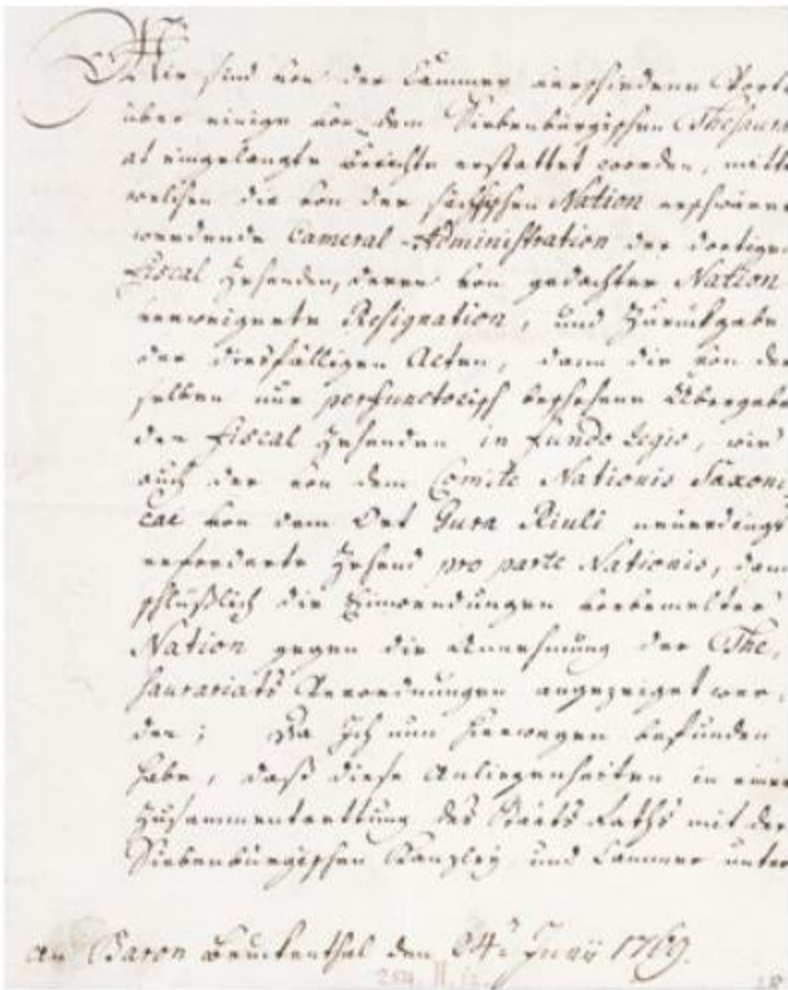 Mir sind von der Cammer verschiedene Vortr
über einige von dem Siebenbürgischen Thesaura
at eingelangte Berichte erstattet worden, mitte
welchen die von der sächsischen Nation
werdende Cameral-Administration der dortigen
Fiscal Zehenden, deren von gedachter Nation
verweigerte Resignation, und Zurückgabe
der diesfälligen Acten, dann die von der
selben nur perfunctorisch beschehene Übergabe
der Fiscal Zehenden in fundo regio, wie
auch der von dem Comite Nationis Saxoni
cae von dem Ort Gura Riuli neuerdings
erforderte Zehend pro parte Nationis, dann
schlüßlich die Einwendungen vorbemelter
Nation gegen die Annehmung der The,
saurariats Anordnungen angezeiget wor,
den; Da Ich nun hierwegen befunden
habe, daß diese Anliegenheiten in einer
Zusammentrettung des Staats Raths mit der
Siebenbürgischen Kanzley und Cammer unter
An Baron Bruckenthal den 24. Junii 1769.